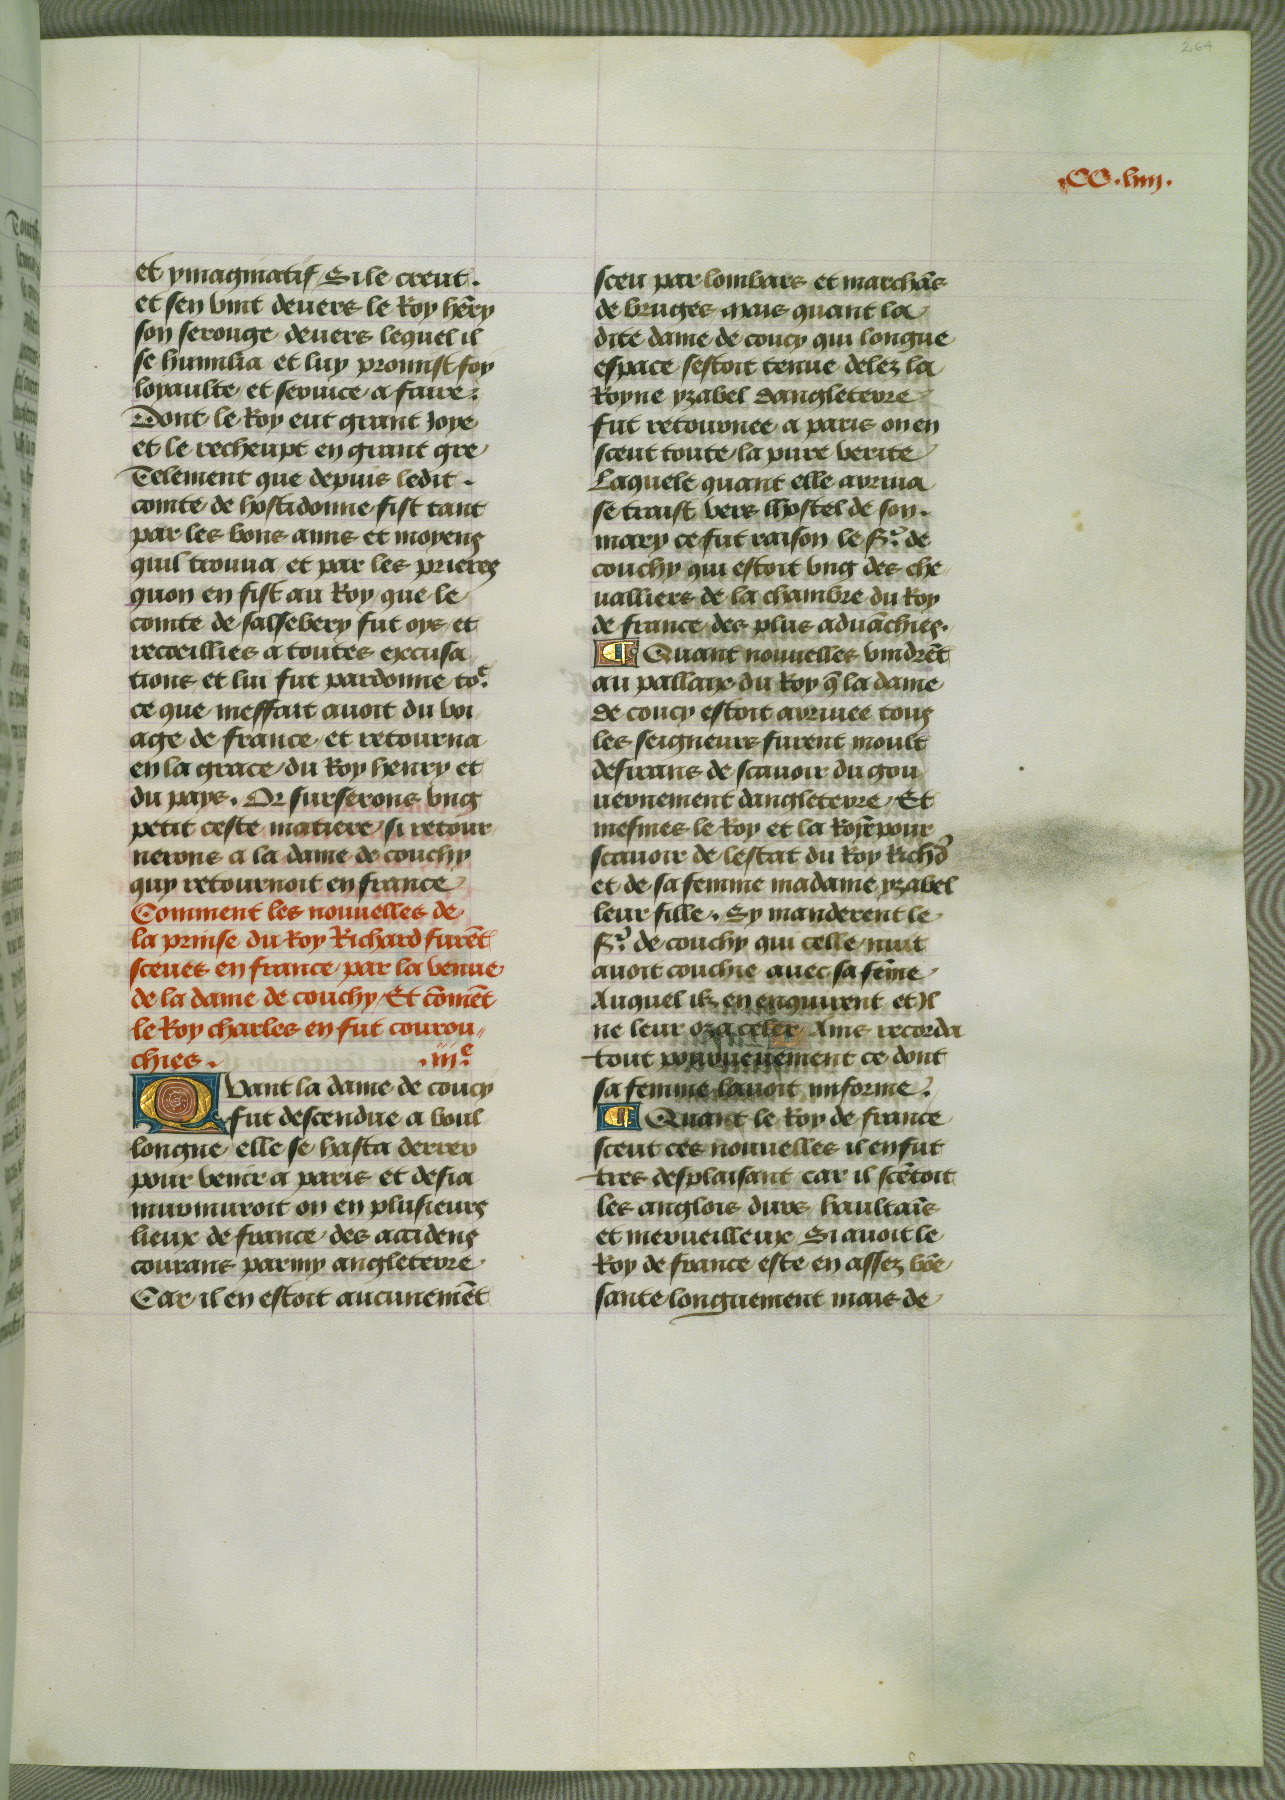 264
.CC.liiii.
et ymaginatif Si le creut.
et sen vint deuers le Roy hēry
son serouge deuers lequel il
se humilia et luy promist foy
loyaulte et seruice a faire.
Dont le Roy eut grant Joye
et le recheupt en grant gre
Telement que depuis ledit.
comte de hostidonne fist tant
par les bons amis et moyens
quil trouua et par les prieres
quon en fist au Roy que le
comte de salsebery fut oys et
recoeillies a toutes excusa
tions et lui fut pardonne to9
ce que meffait auoit du voi
age de france et retourna
en la grace du Roy henry et
du pays. Or surserons vng
petit ceste matiere si retour
nerons a la dame de couchy
quy retournoit en france
Comment les nouuelles de
la prinse du Roy Richard furēt
sceues en france par la venue
de la dame de couchy Et cōmēt
le Roy charles en fut courou
chies. .iiie
Quant la dame de coucy
fut descendue a boul
longne elle se hasta derrer
pour venir a paris et desia
murmuroit on en plusieurs
lieux de france des accidens
courans parmy angleterre
Car il en estoit aucunemēt
sceu par lombars et marchās
de bruges mais quant la
dite dame de coucy qui longue
espace sestoit tenue delez la
Royne yzabel dangleterre
fut retournee a paris on en
sceut toute la pure verite
Laquele quant elle arriua
se traist vers lhostel de son.
mary ce fut raison le Sr. de
couchy qui estoit vng des che
ualliers de la chambre du Roy
de france des plus aduāchies.
¶ Quant nouuelles vindrēt
au pallaye du Roy q̄ la dame
de coucy estoit arriuee tous
les seigneurs furent moult
desirans de scauoir du gou
uernement dangleterre Et
mesmes le Roy et la Royē pour
scauoir de lestat du Roy Richd
et de sa femme madame yzabel
leur fille. Sy manderent le
Sr. de couchy qui celle nuit
auoit couchie auec sa fēme
Auquel ilz en enquirent et Jl
ne leur oza celer Ains recorda
tout pourueuement ce dont
sa femme lauoit informe.
¶ Quant le Roy de france
sceut ces nouuelles il en fut
tres desplaisant car il scētoit
les anglois durs haultais
et merueilleux Si auoit le
Roy de france este en assez bōe
sante longuement mais de